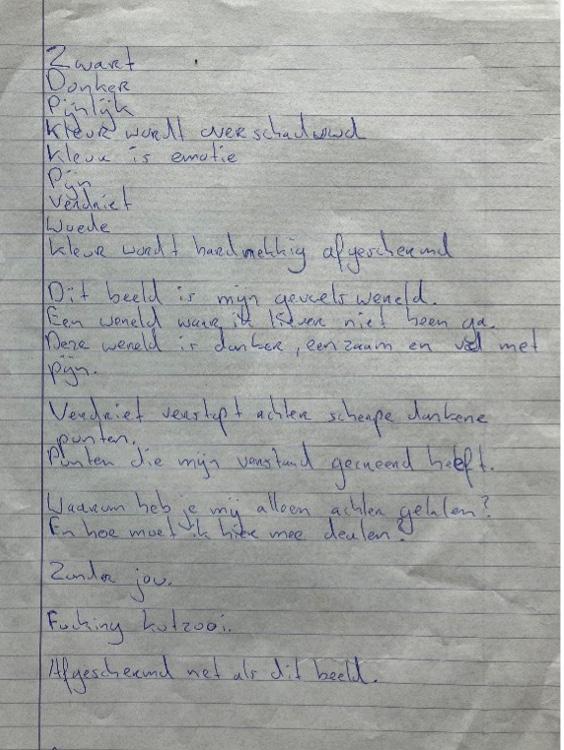 Zwart
Donker
Pijnlijk
Kleur wordt overschaduwd
Kleur is emotie
Pijn
Verdriet
Woede
Kleur wordt hardnekkig afgeschermd
Dit beeld is mijn gevoels wereld.
Een wereld waar ik liever niet heen ga.
Deze wereld is donker, eenzaam en vol met
pijn.
Verdriet verstopt achter scherpe donkere
punten.
Punten die mijn verstand gecreeerd heeft.
Waarom heb je mij alleen achter gelaten?
En hoe moet ik hier mee dealen?
Zonder jou.
Fucking kutzooi.
Afgeschermd net als dit beeld.